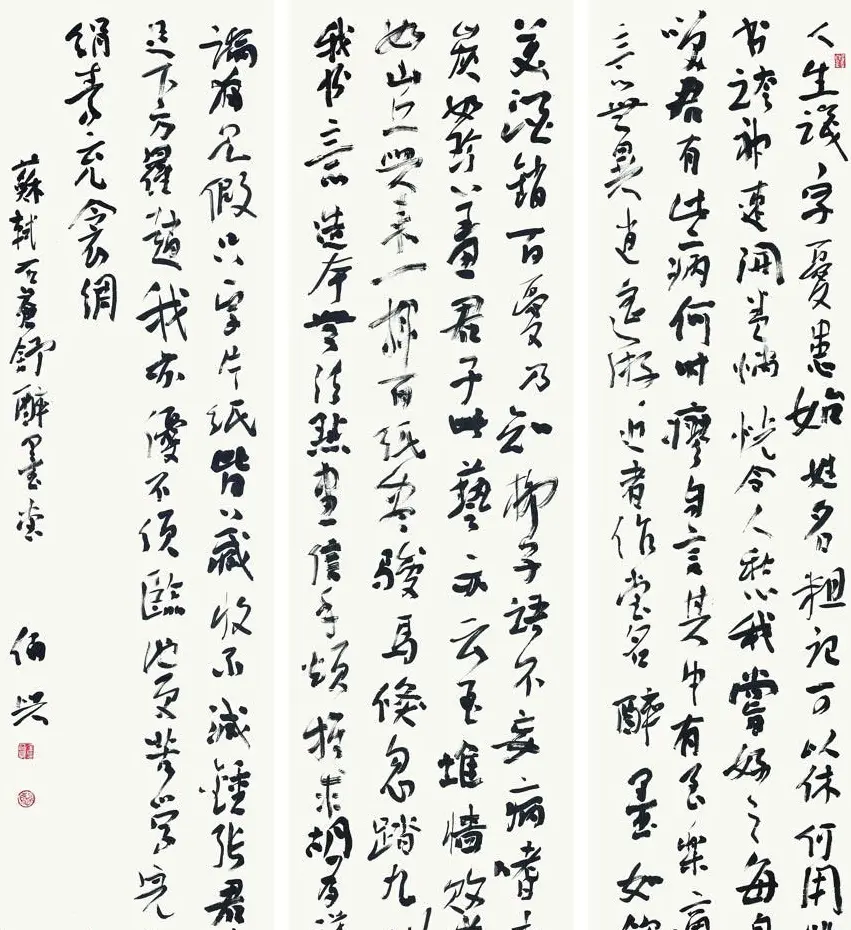 人生識字憂患始姓名粗記可以休何用
書誇神速開卷惝恍令人愁我嘗好之每自
笑君有此病何能瘳自言其中有至樂適
意無異逍遙遊近者作堂名醉墨如飲
美酒銷百憂乃知柳子語不妄病嗜
炭如珍羞君于此藝亦云至堆墻敗
如山丘興來一揮百紙盡駿馬倏忽踏九
我書意造本無法點畫信手煩推求胡為議
論獨見假只字片紙皆藏收不減鍾張君
足下方羅趙我亦優不須臨池更苦學完
絹素充衾裯
蘇軾石蒼舒醉墨堂